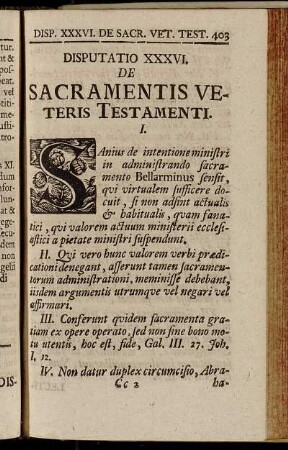 DISP. XXXVI. DE SACR. VET. TEST. 403
DISPUTATIO XXXVI.
DE
SACRAMENTIS VE-
TERIS TESTAMENTI.
I.
SAnius de intentione ministri
in administrando sacra-
mento Bellarminus sensit,
qvi virtualem sufficere do-
cuit, si non adsint actualis
& habitualis, qvam fana-
tici, qvi valorem actuum ministerii ecclesi-
astici a pietate ministri suspendunt.
II. Qvi vero hunc valorem verbi prædi-
cationi denegant, asserunt tamen sacramen-
torum administrationi, meminisse debebant,
iisdem argumentis utrumqve vel negari vel
affirmari.
III. Conferunt qvidem sacramenta gra-
tiam ex opere operato, sed non sine bono mo-
tu utentis, hoc est, fide, Gal. III. 27. Joh.
I, 12.
IV. Non datur duplex circumcisio, Abra-
Cc 2 ha-